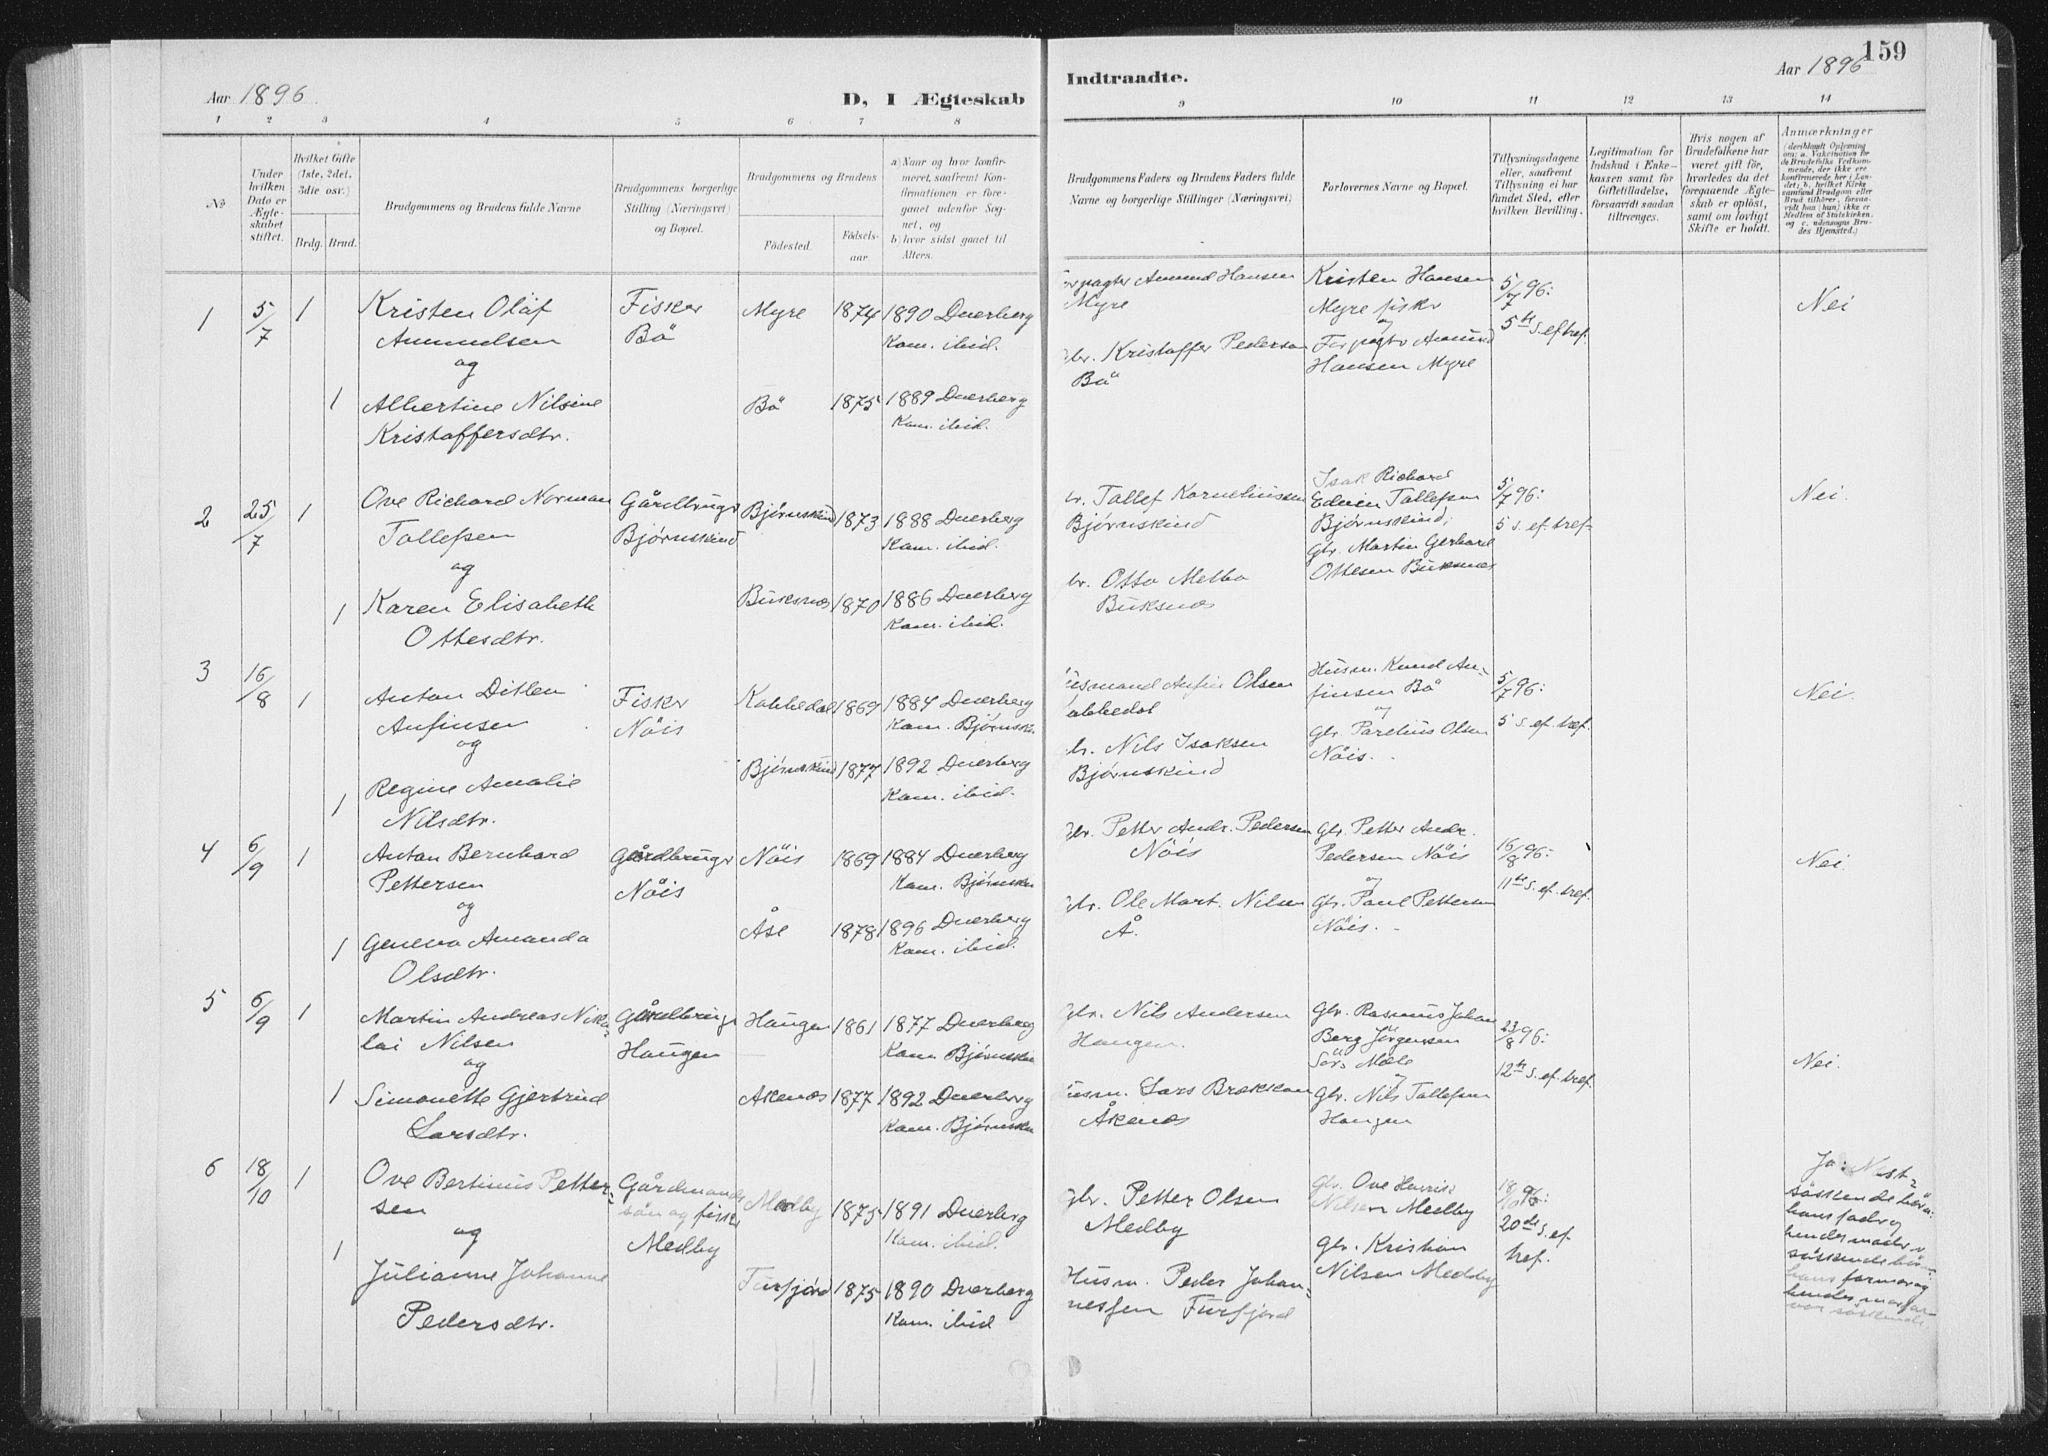 Aar 1896.
D, I Ægteskab
Indtraadte.
Aar 1896
159
1 2 3 4 5 6 7 8
9 10 11 12 13 14
No
Under hvilken Dato er Ægteskabet stiftet.
Hvilket Gifte (1ste, 2det, 3die osv.)
Brdg. Brud.
Brudgommens og Brudens fulde Navne
Brudgommens borgerlige Stilling (Næringsvei) og Bopæl.
Brudgommens og Brudens
Fødested.
Fødsels-aar
a) Naar og hvor konfirmeret, saafremt Konfirmationen er foregaaet udenfor Sognet, og
b) hvor sidst gaaet til Alters.
Brudgommens Faders og Brudens Faders fulde Navne og borgerlige Stillinger (Næringsvei)
Forlovernes Navne og Bopæl.
Tillysningsdagene eller, saafremt Tillysning ei har fundet Sted, efter hvilken Bevilling.
Legitimation for Indskud i Enkekassen samt for Giftetilladelse, forsaavidt saadan tiltrænges.
Hvis nogen af Brudefolkene har været gift før, hvorledes da det foregaaende Ægteskab er opløst, samt om lovligt Skifte er holdt.
Anmærkninger
(deriblandt Oplysning om: a. Vakcination for de Brudefolks Vedkommende, der ikke ere konfirmerede her i Landet; b. hvilket Kirkesamfund Brudgom eller Brud tilhører, forsaavidt han (hun) ikke er Medlem af Statskirken, og c. udensogns Brudes Hjemsted.)
1 5/7 1 Kristen Olaf Amundsen
Fisker Bö
Myre 1874 1890 Dverberg
Kom. ibid.
Forpagter Amund Hansen Myre
Kristen Hansen Myre fisker
og
Forpagtr Amund Hansen Myre
5/7 96:
5te S. ef tref.
Nei
og
1 Albertine Nilsine Kristoffersdtr.
Bö 1875 1889 Dverberg
Kom. ibid.
Gbr. Kristoffer Pedersen Bö
2 25/7 1 Ove Richard Norman Tollefsen
Gårdbrugr Bjørnskind
Bjørnskind 1873 1888 Dverberg
Kom. ibid.
br. Tollef Korneliussen Bjørnskind
Isak Richard Edvin Tollefsen Bjørnskind,
Gbr. Martin Gerhard Ottesen Buksnes
5/7 96:
5 s. ef. tref.
Nei.
og
1 Karen Elisabeth Ottesdtr.
Buksnes 1870 1886 Dverberg
Kom. ibid.
br. Otto Buksnes
3 16/8 1 Anton Ditlev Anfinsen
Fisker Nöis
Kobbedal 1869 1884 Dverberg
Kom. Bjørnsk.
Husmand Anfin Olsen Kobbedal
Husm. Knud Anfinsen Bö
og
Gbr. Parelius Olsen Nöis.
5/7 96:
5 s. ef. tref.
Nei.
og
1 Regine Amalie Nilsdtr.
Bjørnskind 1877 1892 Dverberg
Kom. ibid.
Gbr. Nils Isaksen Bjørnskind
4 6/9 1 Anton Bernhard Pettersen
Gårdbrugr Nöis
Nöis 1869 1884 Dverberg
Kom. Bjørnskin
Gbr. Petter Andr. Pedersen Nöis
Gbr. Petter Andr. Pedersen Nöis
og
Gbr. Paul Pettersen Nöis.
16/8 96:
11te S. ef. tref.
Nei.
og
1 Geneva Amanda Olsdtr.
Åse 1878 1896 Dverberg
Kom. ibid.
Gbr. Ole Mart. Nilsen Å.
5 6/9 1 Martin Andreas Nikolai Nilsen
Gårdbrugr Haugen
Haugen 1861 1877 Dverberg
Kom. Bjørnskin
Gbr. Nils Andersen Haugen.
Gbr. Rasmus Johan Berg Jörgensen Sörs Mele
og
Gbr. Nils Tollefsen Haugen
23/8 96:
12te S. ef. tref.
Nei.
og
1 Simonette Gjertrud Larsdtr.
Åkenes 1877 1892 Dverberg
Kom. Bjørnskin
Husm. Lars Brekkan Åkenes
6 18/10 1 Ove Bertinus Pettersen
Gårdmands sön og fisker Medby
Medby 1875 1891 Dverberg
Kom. ibid.
Gbr. Petter Olsen Medby
Gbr. Ove Henrik Nilsen Medby
Gbr. Kristian Nilsen Medby
18/10 96:
20de S. ef. tref.
Ja: Næst-söskendebörn:
hans fader og
hendes moder v.
söskendebörn
hans farmor og
hendes morfar
var söskende
og
1 Julianne Johanne Pedersdtr.
Furfjord 1875 1890 Dverberg
Kom. ibid
Husm. Peder Johannessen Furfjord